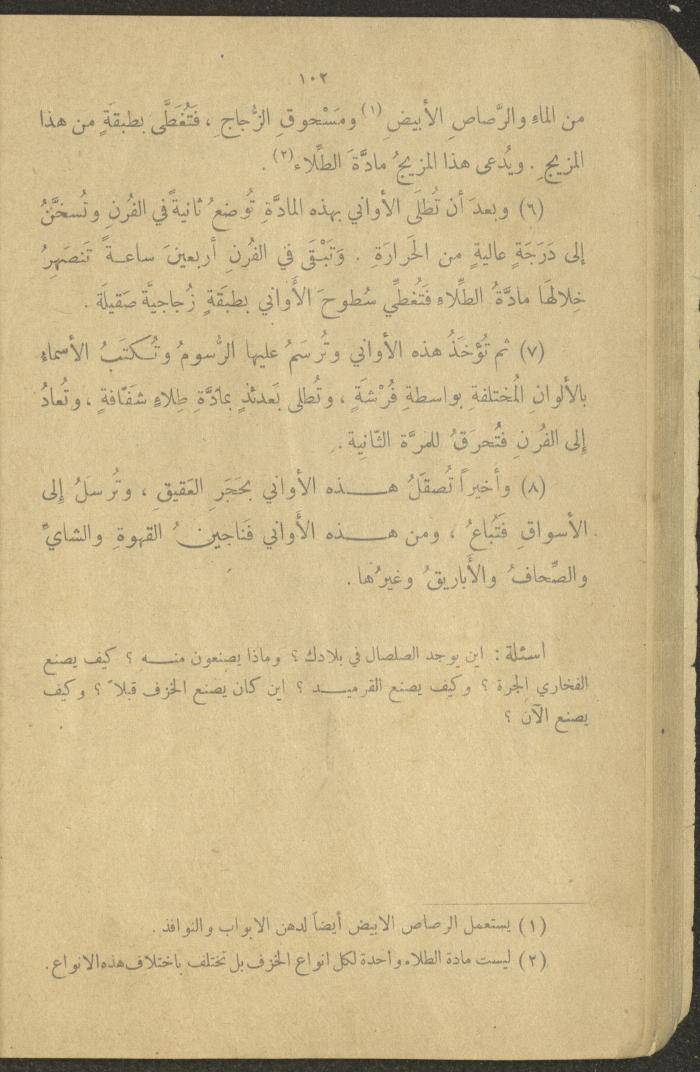 ١٠٢
من الماءِ والرَّصاصِ الأبيضِ (١) ومَسْحوقِ الزُّجاجِ ، فَتُغَطَّى بطبقةٍ من هذا
المزيجِ . ويُدعى هذا المزيجُ مادَّةَ الطِّلاء (٢) .
(٦) وبعدَ أنْ تُطلَى الأواني بهذه المادَّةِ تُوضعُ ثانيةً في الفُرنِ وتُسخَّنُ
إلى دَرَجَةٍ عاليةٍ من الحَرارَةِ . وَتَبْقَى في الفُرنِ أربعينَ ساعـةً تَنصَهِرُ
خِلالهَا مادَّةُ الطِّلاءِ فَتُغطِّي سُطوحَ الأَواني بطبَقةٍ زُجاجيَّة صَقيلَة .
(٧) ثم تُؤخَذُ هذه الأواني وتُرسَمُ عليها الرُّسومُ وتُـكتَبُ الأسماء
بالألوانِ المُختلفةِ بواسطةِ فُرْشَةٍ ، وتُطلى بَعدئذٍ بمادَّةِ طِلاءٍ شفّافةٍ ، وتُعادُ
إلى الفُرنِ فتُحرَقُ للمرَّة الثّانِية .
(٨) وأخيراً تُصقَلُ هـــذه الأواني بحَجَرِ العَقيقِ ، وتُرسَلُ إلى
الأسواقِ فتُباعُ ، ومن هـــذه الأَواني فَناجينُ القهوةِ والشايِّ
والصِّحافُ والأَباريقُ وغيرُها .
اسئلة : اين يوجد الصلصال في بلادك ؟ وماذا يصنعون منـــه ؟ كيف يصنع
الفخاري الجرة ؟ وكيف يصنع القرميـــد ؟ اين كان يصنع الخزف قبلاً ؟ وكيف
يصنع الآن ؟
(١) يستعمل الرصاص الابيض أيضاً لدهن الابواب والنوافذ .
(٢) ليست مادة الطلاء واحدة لكل انواع الخزف بل تختلف باختلاف هذه الانواع .